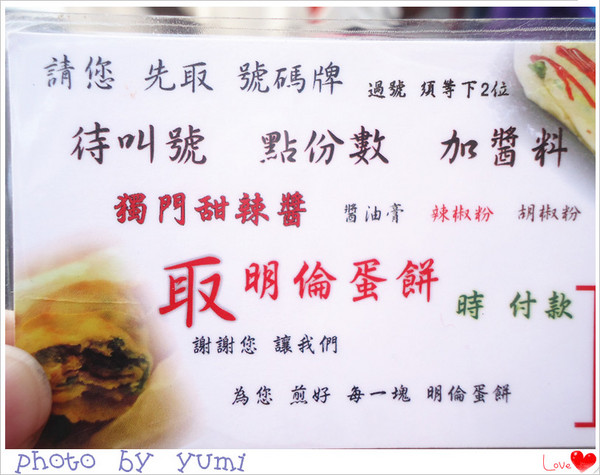 請您 先取 號碼牌 過號 須等下2位
待叫號 點份數 加醬料
獨門甜辣醬 醬油膏 辣椒粉 胡椒粉
取明倫蛋餅 時 付款
謝謝您 讓我們
為您 煎好 每一塊 明倫蛋餅
photo by yumi
Love